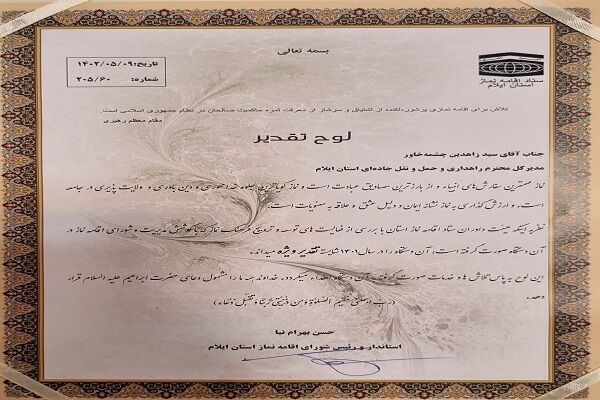 بسمه تعالی
تاریخ: ۱۴۰۲/۰۵/۰۹
شماره: ۲۰۵/۶۰
ستاد اقامه نماز
استان ایلام
تلاش برای اقامه نمازی پرشور، آکنده از اشتیاق و سرشار از معرفت ثمره حاکمیت صالحان در نظام جمهوری اسلامی است.
مقام معظم رهبری
لوح تقدیر
جناب آقای سید زاهدین چشمه‌خاور
مدیرکل محترم راهداری و حمل و نقل جاده‌ای استان ایلام
نماز مهمترین سفارش‌های انبیاء و از بارزترین مصادیق عبادت است و نماز جلوه خدامحوری و دین یاوری و ولایت پذیری در جامعه
است. و ارزش گذاری به نماز نشانه ایمان و دلیل عشق و علاقه به معنویات است.
نظر به اینکه هیئت داوران ستاد اقامه نماز استان با بررسی از فعالیت های توسعه و ترویج فرهنگ نمازی که با مدیریت و شورای اقامه نماز در
آن دستگاه صورت گرفته است، آن دستگاه را در سال ۱۴۰۱ شایسته تقدیر ویژه میداند.
این لوح به پاس تلاش ها و خدمات صورت گرفته به آن دستگاه اهداء میگردد. خداوند همه ما را مشمول دعای حضرت ابراهیم علیه السلام قرار
دهد.
(رب اجعلنی مقیم الصلوة و من ذریتی ربنا و تقبل دعاء)
حسن بهرام نیا
استاندار و رئیس شورای اقامه نماز استان ایلام